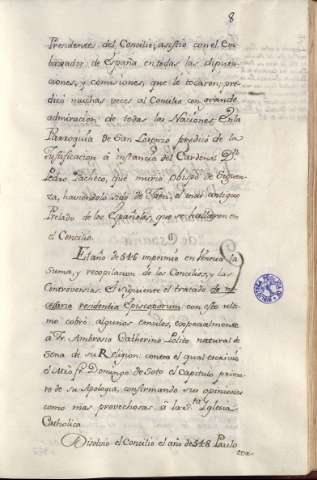 8
Presidentes del Concilio, asistio con el Em-
baxador de España en todas las diputa-
ciones, y comisiones, que le tocaron; pre-
dicó muchas veces al Concilio con grande
admiracion de todas las Naciones; En la
Parroquia de San Lorenzo predicó de la
Justificacion à instancia del Cardenal Dn
Pedro Pacheco, que murió Obispo de Siguen-
za, haviendolo sido de Jaen, el mas antiguo
Prelado de los Españoles, que se hallaron en
el Concilio.
El año de 546 imprimió en Venecia la
suma, y recopilacion de los Concilios, y las
Controversias. El siguiente el tratado de ne
cesario residentia Episcoporum con esto ulti
mo cobró algunos emulos, especialmente
à Fr. Ambrosio Catherino Polito natural de
Sena de su Religion: contra el qual escrivió
el Mro fr. Domingo de Soto el Capitulo prime
ro de su Apologia, confirmando sus opiniones
como mas provechosas à la Sta Iglesia
Catholica.
Disolvió el Concilio el año de 548 Paulo